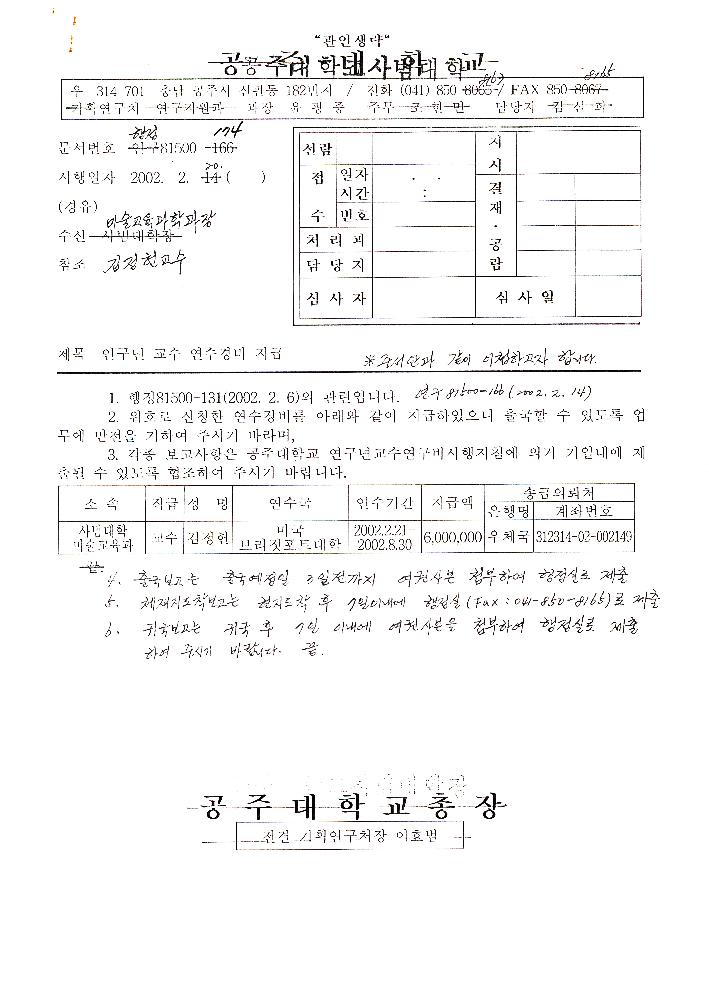 "관인생략"
공주대학교사범대학
우 314-701 충남 공주시 신관동 182번지 / 전화 (041) 850-8065 / FAX 850-8067
8163 8165
기획연구처 연구지원과 과장 유 병 종 주무 담당자 김 선 희
행정 174
문서번호 연구81500-166
20.
시행일자 2002. 2. 14 ( )
(경유)
미술교육과학과장
수신 사범대학장
참조 김정헌교수
선람
접 수
일자 . .
시간 :
번호
처 리 과
담 당 자
심 사 자
지 시
결 재 · 공 람
심 사 일
제목 연구년 교수 연수경비 지급
※ 문서만과 같이 이첩하고자 합니다.
1. 행정81500-131(2002. 2. 6)의 관련입니다. 연구81500-166(2002. 2. 14)
2. 위호로 신청한 연수경비를 아래와 같이 지급하였으니 출국할 수 있도록 업
무에 만전을 기하여 주시기 바라며,
3. 각종 보고사항은 공주대학교 연구년교수연구비시행지침에 의거 기일내에 제
출될 수 있도록 협조하여 주시기 바랍니다.
소 속 직급 성 명 연수국 연수기간 지급액 송금의뢰처
은행명 계좌번호
사범대학 미술교육과 교수 김정헌 미국 브리짓포트대학 2002.2.21 2002.8.30 6,000,000 우체국 312314-02-002149
끝.
4. 출국보고는 출국예정일 3일전까지 여권사본 첨부하여 행정실로 제출
5. 체재지도착보고는 현지도착 후 7일이내에 행정실(Fax : 041-850-8165)로 제출
6. 귀국보고는 귀국 후 7일 이내에 여권사본을 첨부하여 행정실로 제출
하여 주시기 바랍니다. 끝.
공 주 대 학 교 총 장
전결 기획연구처장 이효범